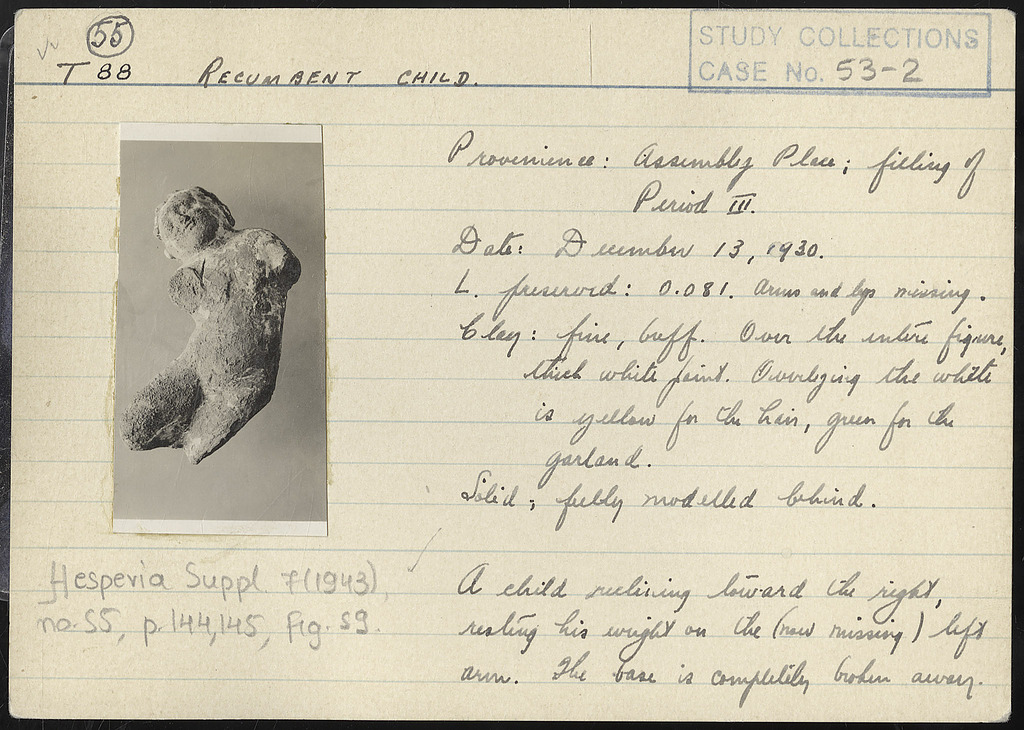 55
T 88 RECUMBENT CHILD.
STUDY COLLECTIONS
CASE No. 53-2
Provenience: Assembly Place; filling of
Period III.
Date: December 13, 1930.
L. preserved: 0.081. Arms and legs missing.
Clay: fine, buff. Over the entire figure,
thick white paint. Overlying the white
is yellow for the hair, green for the
garland.
Solid; fully modelled behind.
Hesperia Suppl. 7(1943),
no. 55, p. 144,145, fig. 59.
A child reclining toward the right,
resting his weight on the (now missing) left
arm. The base is completely broken away.